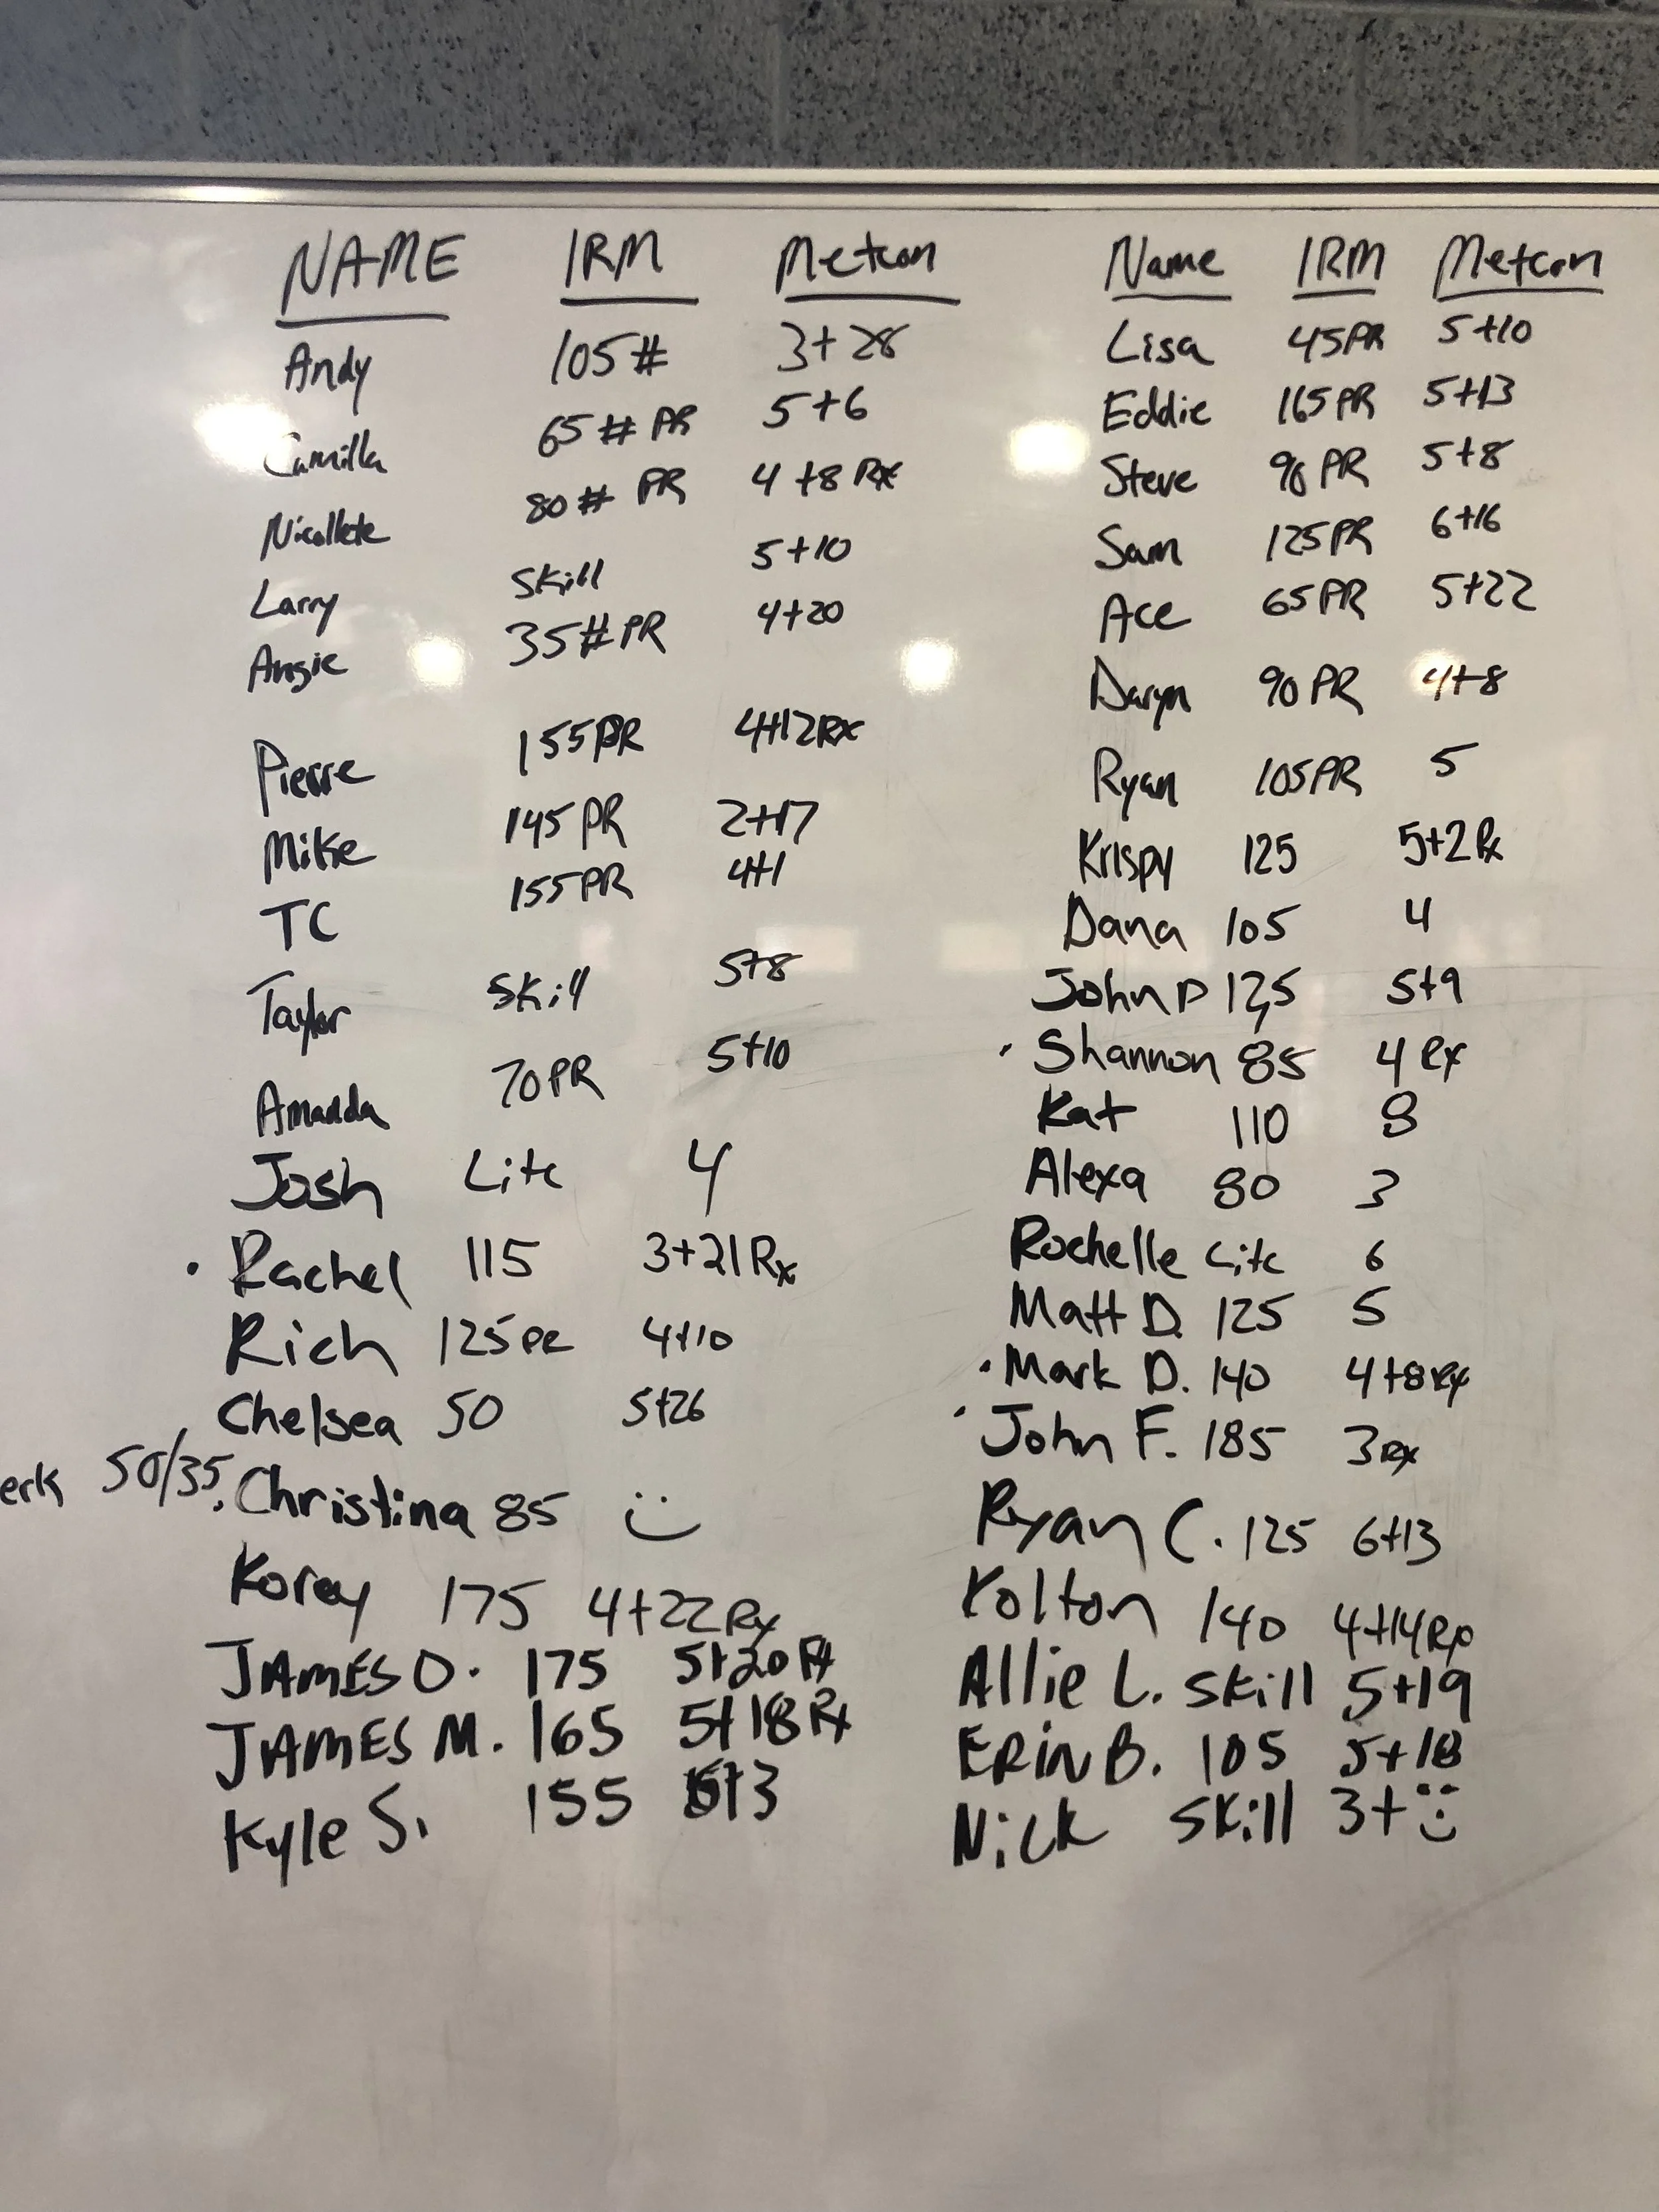 NAME 1RM Metcon
Andy 105# 3+28
Camilla 65# PR 5+6
Nicollete 80# PR 4+8 Rx
Larry Skill 5+10
Angie 35# PR 4+20
Pierre 155PR 4+12Rx
Mike 145 PR 2+17
TC 155PR 4+1
Taylor Skill 5+8
Amanda 70PR 5+10
Josh Lite 4
Rachel 115 3+21Rx
Rich 125PR 4+10
Chelsea 50 5+26
erk 50/35
Christina 85 :)
Korey 175 4+22Rx
JAMES O. 175 5+20
JAMES M. 165 5+18Rx
Kyle S. 155
Name 1RM Metcon
Lisa 45PR 5+10
Eddie 165PR 5+13
Steve 90PR 5+8
Sam 125PR 6+16
Ace 65PR 5+22
Daryn 90PR 4+8
Ryan 105PR 5
Krispy 125 5+2Rx
Dana 105 4
John D 125 5+9
Shannon 85 4Rx
Kat 110 8
Alexa 80 3
Rochelle Lite 6
Matt D. 125 5
Mark D. 140 4+8Rx
John F. 185 3Rx
Ryan C. 125 6+13
Kolton 140 4+14Rx
Allie L. skill 5+19
ERin B. 105 5+18
Nick skill 3+:)